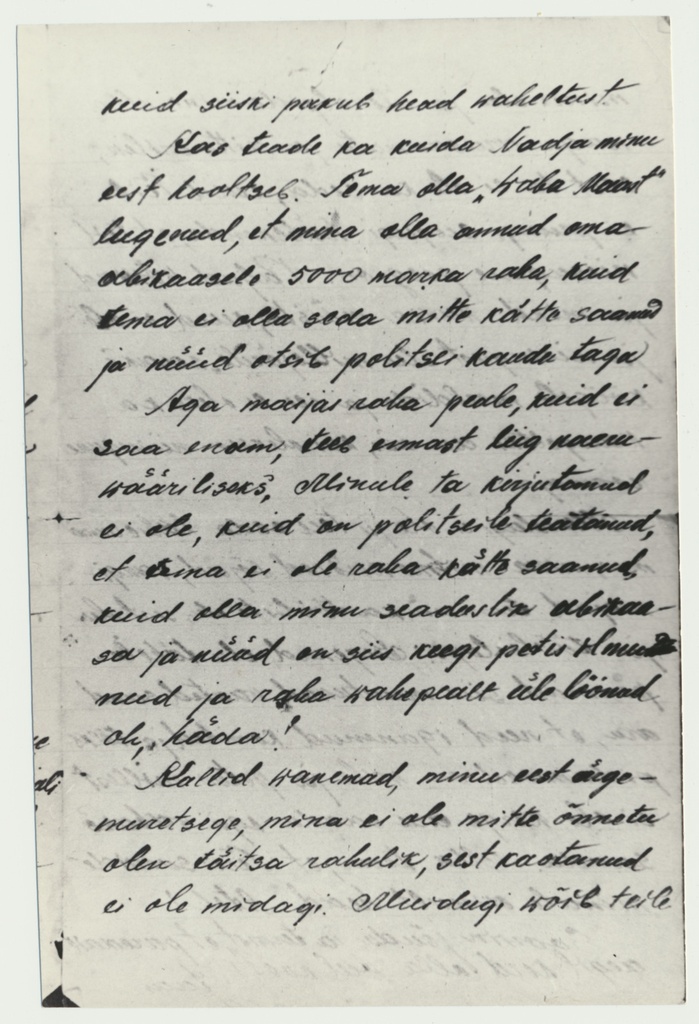 kuid siiski pakub head waheltust.
Kas teade ka kuida Nadja minu
eest hooltseb. Tema olla „Waba Maast"
lugenud, et mina olla annud oma-
abikaasele 5000 marka raha, kuid
tema ei olla seda mitte kätte saanud
ja nüüd otsib politsei kaudu taga
Aga maijas raha peale, kuid ei
saa enam, teeb ennast liig naeru-
wääriliseks, Minule ta kirjutanud
ei ole, kuid on politseile teatanud,
et tema ei ole raha kätte saanud,
kuid olla minu seaduslik abikaa-
sa ja nüüd on siis keegi petis ilmu
nud ja raha wahepealt üle löönud
oh, häda!
Kallid wanemad, minu eest ärge-
muretsege, mina ei ole mitte õnnetu
olen täitsa rahulik, sest kaotanud
ei ole midagi. Muidugi wõib teile